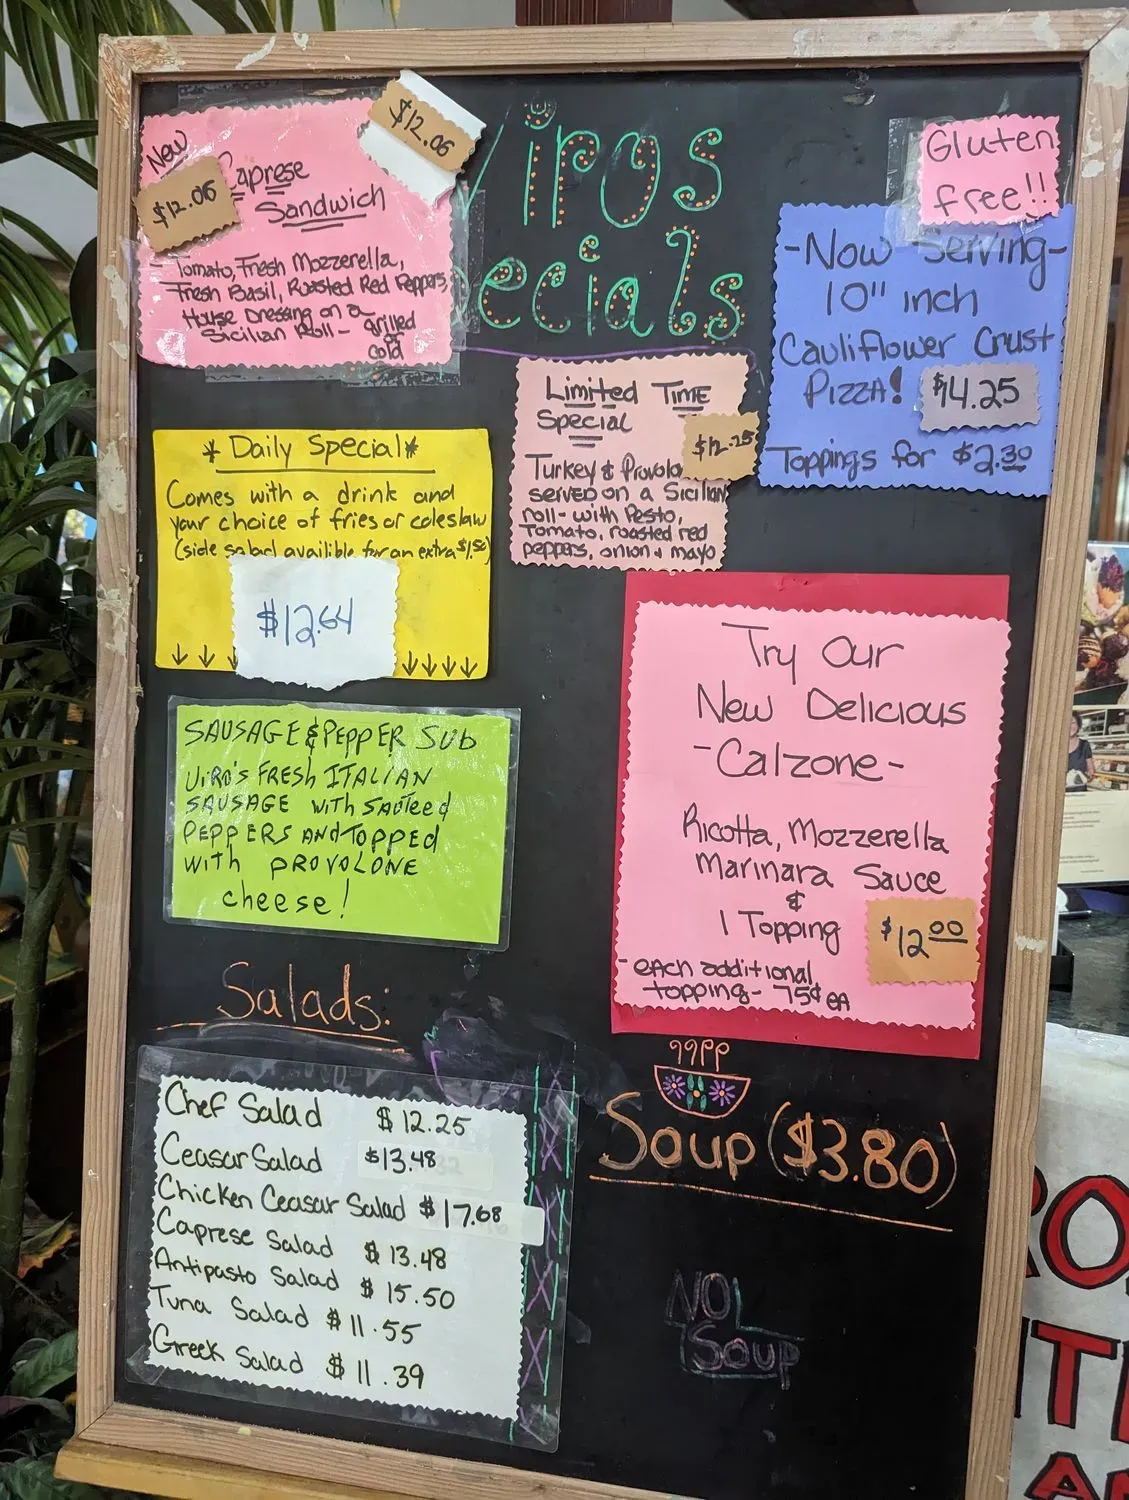 New
$12.06
$12.06
Caprese
Sandwich
Tomato, Fresh Mozzerella,
Fresh Basil, Roasted Red Peppers,
House Dressing on a
Sicilian Roll- grilled
or
cold
Viros
Specials
Gluten
free!!
-Now Serving-
10" inch
Cauliflower Crust
Pizza!
$14.25
Toppings for $2.30
Limited Time
Special
$12.25
Turkey & Provolo
served on a Sicilian
roll- with Pesto,
Tomato, roasted red
peppers, onion & mayo
* Daily Special *
Comes with a drink and
your choice of fries or coleslaw
(side salad availible for an extra $1.50)
$12.64
SAUSAGE & PEPPER SUB
VIRO'S FRESH ITALIAN
SAUSAGE with SAUTEED
PEPPERS AND TOPPED
WITH PROVOLONE
cheese!
Try Our
New Delicious
-Calzone-
Ricotta, Mozzerella
Marinara Sauce
&
1 Topping
$12.00
- each additional
topping- 75¢ ea
Salads:
Chef Salad $12.25
Ceasar Salad $13.48
Chicken Ceasar Salad $17.68
Caprese Salad $13.48
Antipasto Salad $15.50
Tuna Salad $11.55
Greek Salad $11.39
Soup ($3.80)
NO
Soup